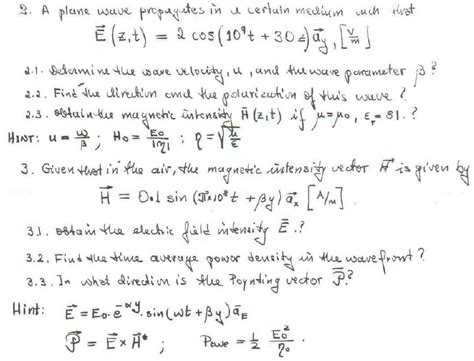 2. A plane wave propagates in a certain medium such that
E⃗(z,t) = 2 cos(10⁹t + 30z) a⃗y, [V/m]
2.1. Determine the wave velocity, u, and the wave parameter β?
2.2. Find the direction and the polarization of this wave?
2.3. obtain the magnetic intensity H⃗(z,t) if μ=μ₀, εᵣ=81.?
HINT: u = ω/β; H₀ = E₀/|η|; η = √(μ/ε)
3. Given that in the air, the magnetic intensity vector H⃗ is given by
H⃗ = 0.1 sin (π×10⁸t + βy) a⃗x [A/m]
3.1. obtain the electric field intensity E⃗.?
3.2. Find the time average power density in the wavefront?
3.3. In what direction is the Poynting vector P⃗?
Hint: E⃗ = E₀·e^(-αy)·sin(ωt + βy) a⃗E
P⃗ = E⃗ × H⃗*; Pave = 1/2 E₀²/η₀.